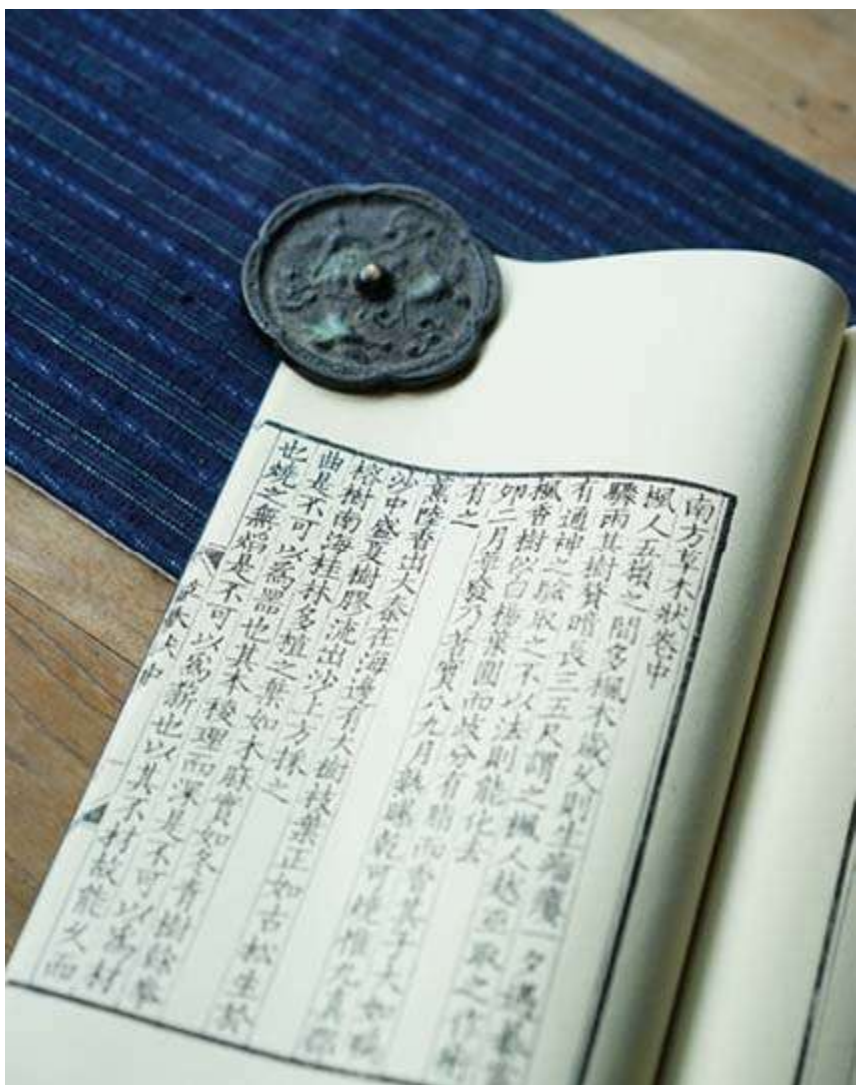 南方草木狀卷中
楓人五嶺之間多楓木歲久則生瘤癭一夕遇暴雷
驟雨其樹贅暗長三五尺謂之楓人越巫取之作術
有通神之驗取之不以法則能化去
楓香樹似白楊葉圓而歧分有脂而香其子大如鴨
卵二月華發乃著實八九月熟曝乾可燒惟九真郡
有之
薰陸香出大秦在海邊有大樹枝葉正如古松生於
沙中盛夏樹膠流出沙上方採之
榕樹南海桂林多植之葉如木麻實如冬青樹幹拳
曲是不可以爲器也其木棱理而深是不可以爲材
也燒之無焰是不可以爲薪也以其不材故能久而
中